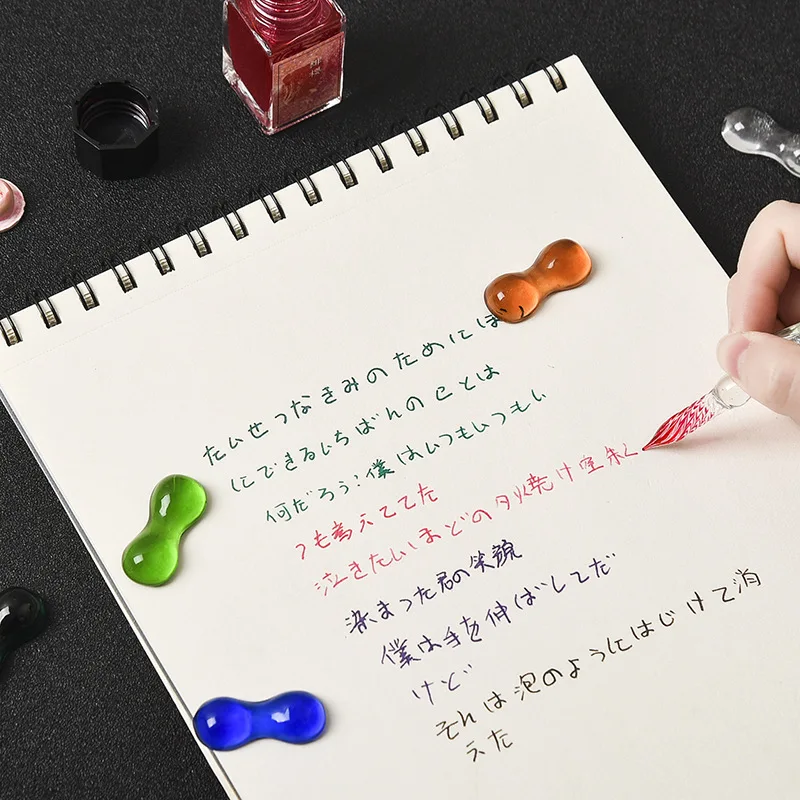 たいせつなきみのためにぼ
にできるいちばんのことは
何だろう?僕はいつもいつもい
つも考えてた
泣きたいほどの夕焼け空朱く
染まった君の笑顔
僕は手を伸ばしてだ
けど
それは泡のようにはじけて消
えた